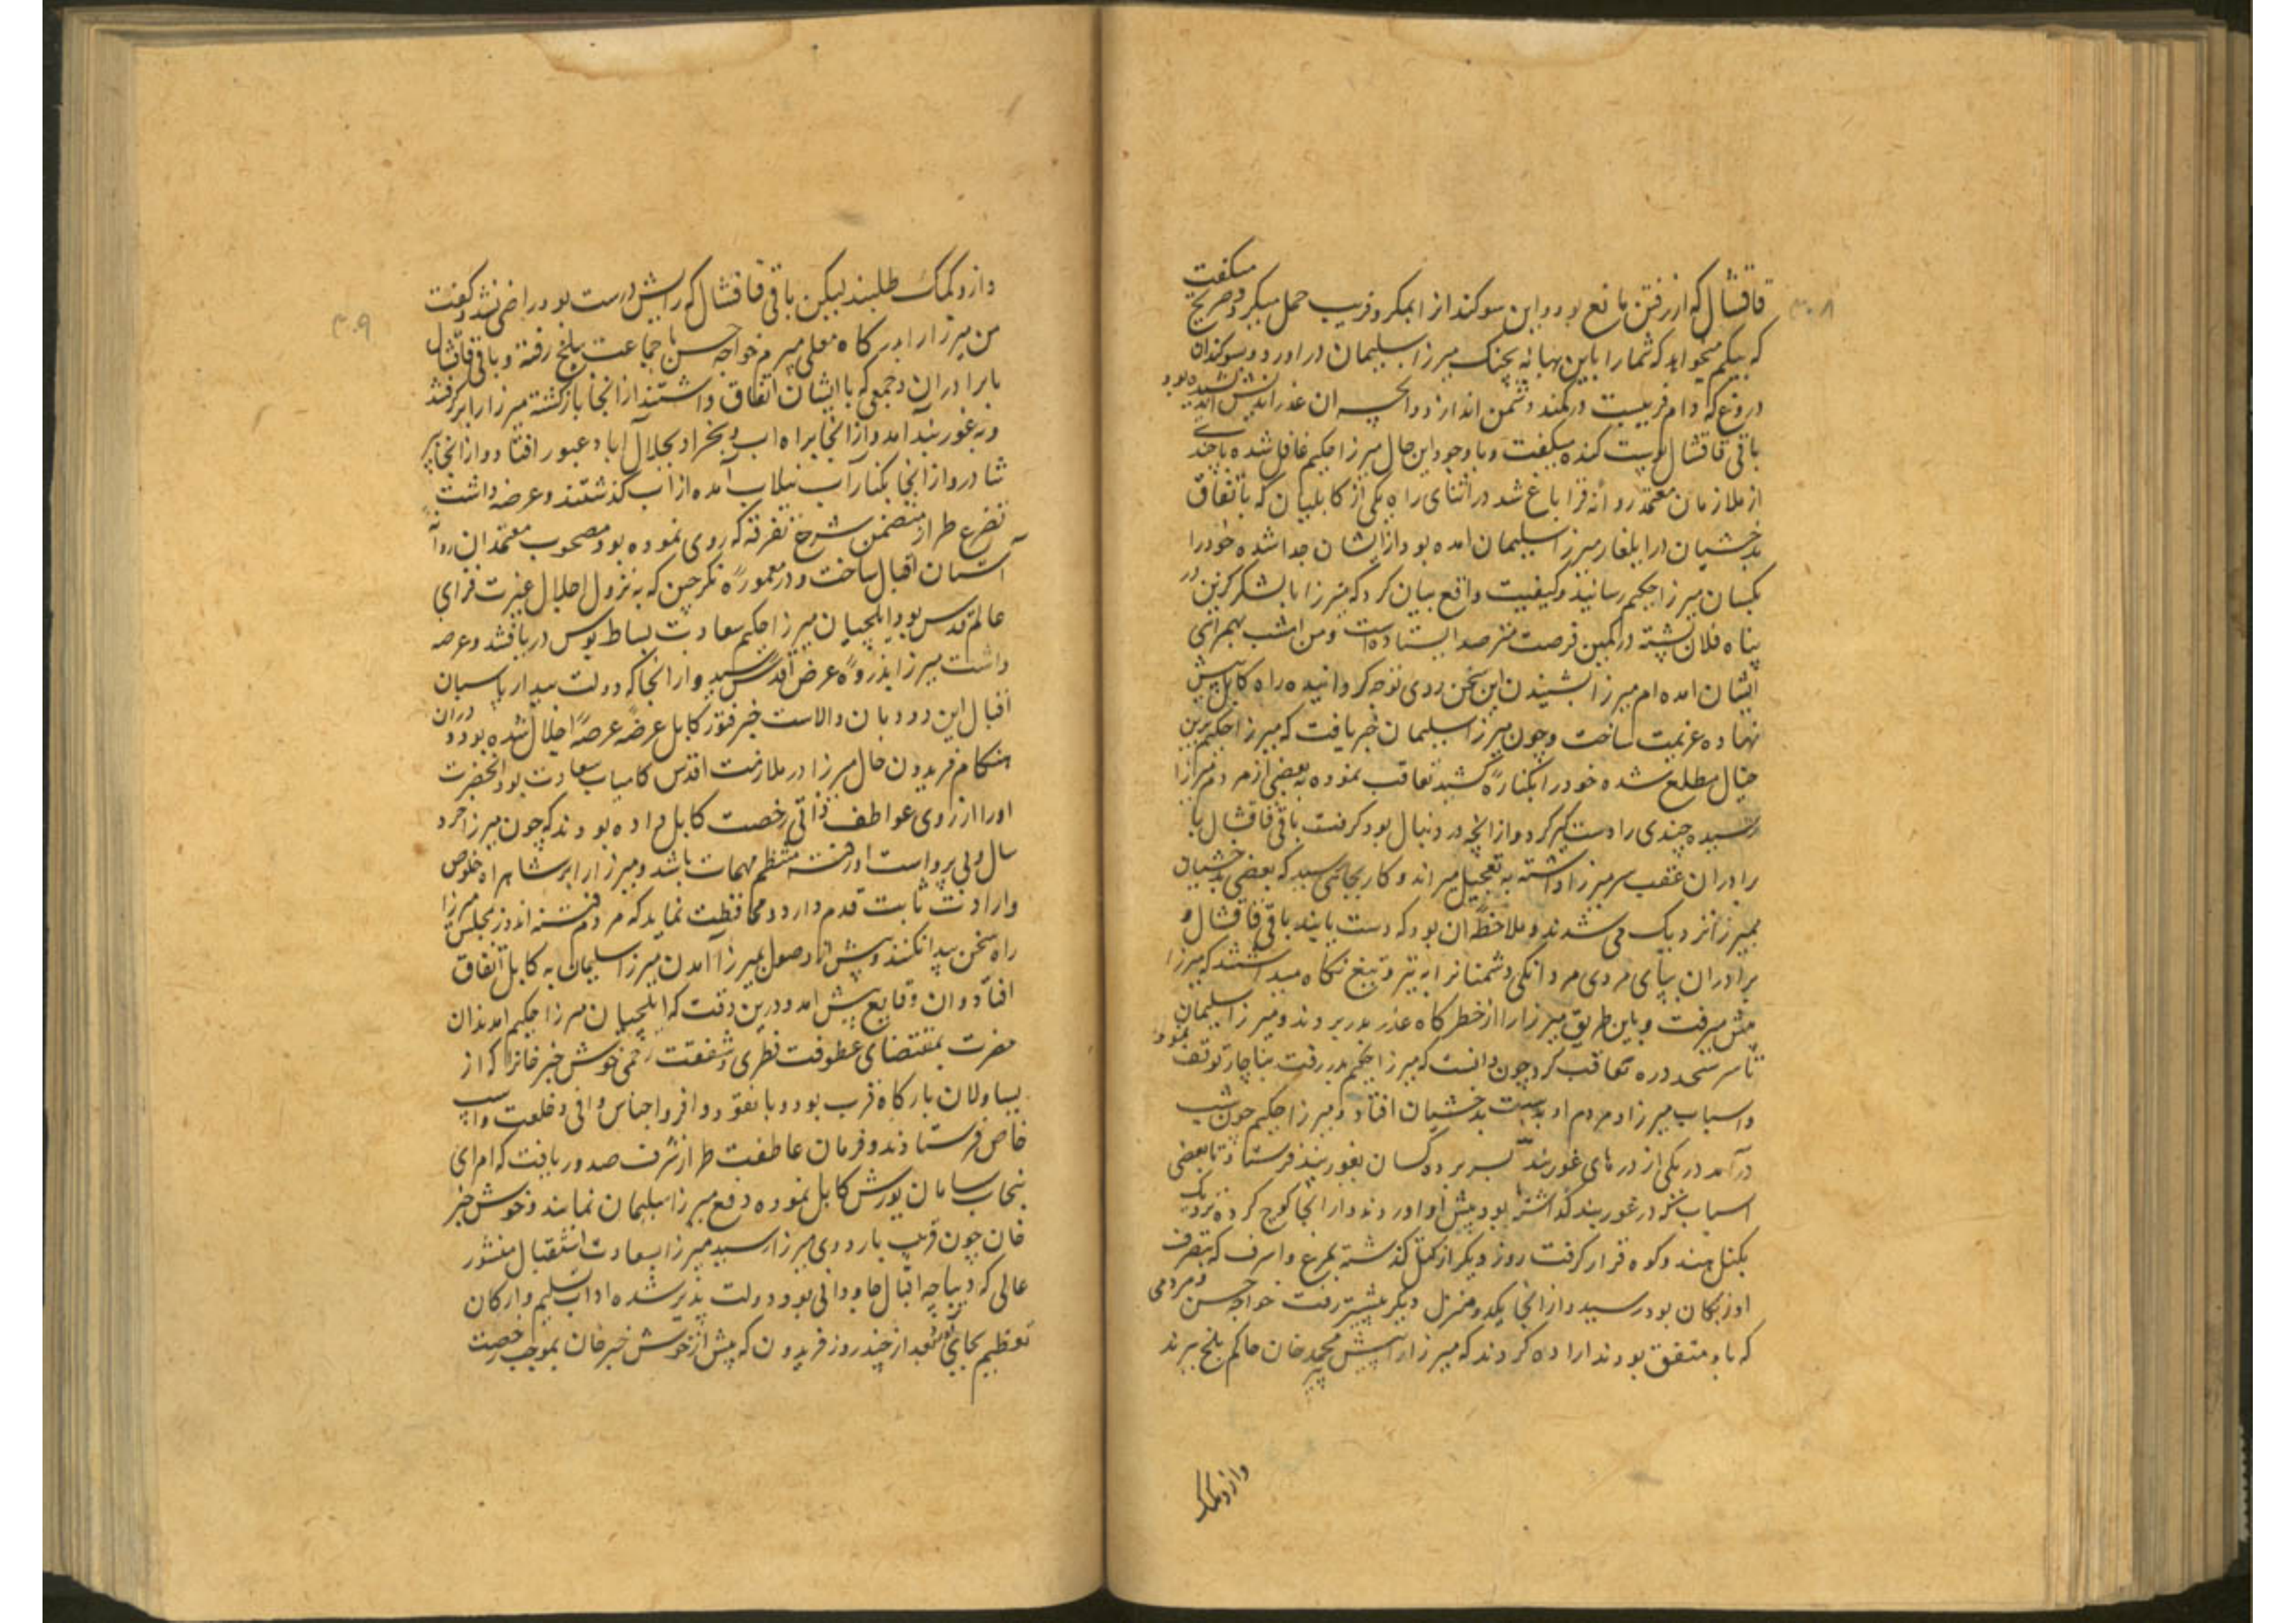 ۳۰۸
میگفت
قاقشال که از رفتن مانع بود و این سوکند از ابمکر و فریب حمل میکرد و صریح
که بیکم میخواهد که شما را باین بهانه بچنک میرزا سلیمان در اورد و سوکندان
دروغ که دام فریبست در کمند دشمن اندازد و انچه ان غدر اندیش اندیشیده بود
باقی قاقشال پوست کنده میگفت و با وجود این حال میرزا حکیم غافل شده با چندی
از ملازمان معتمد روانه قرا باغ شد در اثنای راه یکی از کابلیان که باتفاق
بدخشیان در ایلغار میرزا سلیمان امده بود از ایشان جدا شده خود را
بکسان میرزا حکیم رسانید و کیفیت واقع بیان کرد که میرزا با لشکر کزین در
پناه فلان پشته در کمین فرصت مترصد ایستاده است و من امشب بهمراهی
ایشان امده ام میرزا بشنیدن این سخن روی توجه کردانیده راه کابل پیش
نهاده عزیمت ساخت و چون میرزا سلیمان خبر یافت که میرزا حکیم برین
خیال مطلع شده خود را بکناره کشید تعاقب نموده به بعضی از مردم میرزا
رسیده چندی را دستکیر کرد و از انچه در دنبال بود کرفت باقی قاقشال با
برادران عقب سر میرزا داشته به تعجیل میراند و کار بجائی رسید که بعضی بدخشیان
بمیرزا نزدیک می شدند و ملاحظه ان بود که دست یابند باقی قاقشال و
برادران بپای مردی مردانکی دشمنانرا به تیر و تیغ نکاه میداشتند که میرزا
پیش میرفت و باین طریق میرزا را از خطرکاه عذر بدر بردند و میرزا سلیمان
تا سر سنجد دره تعاقب کرد چون دانست که میرزا حکیم بدر رفت بناچار توقف نمود
و اسباب میرزا و مردم او بدست بدخشیان افتاد و میرزا حکیم چون شب
درآمد در یکی از دره های غوربند بسر برده کسان بغوربند فرستاد تا بعضی
اسباب که در غوربند کذاشته بود پیش او اوردند و از انجا کوچ کرده نزدیک
بکتل هندو کوه قرار کرفت روز دیکر از کتل کذشته بمرغ و اسرف که بتصرف
اوزبکان بود رسید و از انجا یکدو منزل دیکر پیشتر رفت خواجه حسن و مردمی
که باو متفق بودند اراده کردند که میرزا را پیش پیر محمد خان حاکم بلخ برند
وازو کمک
۳۰۹
و ازو کمک طلبند لیکن باقی قاقشال که رایش درست بود راضی نشد و کفت
من میرزا را بدرکاه معلی میبرم خواجه حسن با جماعت ببلخ رفته و باقی قاقشال
با برادران و جمعی که با ایشان اتفاق داشتند از انجا بازکشته میرزا را برکرفتند
و به غوربند آمد و از انجا براه اب و بخراد بجلال آباد عبور افتاد و از انجا به پر
شاور و از انجا بکنار آب نیلاب آمده از اب کذشتند و عرضه داشت
تضرع طراز متضمن شرح تفرقه که روی نموده بود مصحوب معتمدان روانه
آستان اقبال ساخت و در معموره نکرچین که به نزول اجلال غیرت فزای
عالم قدس بود ایلچیان میرزا حکیم سعادت بساط بوس دریافتند و عرضه
داشت میرزا بذروه عرض اقدس رسید و از انجا که دولت بیدار پاسبان
اقبال این دودمان والاست خبر فتور کابل عرضه عرصه اجلال شده بود و دران
هنکام فریدون خال میرزا در ملازمت اقدس کامیاب سعادت بود انحضرت
اورا از روی عواطف ذاتی رخصت کابل داده بودند که چون میرزا خرد
سال و بی پرواست او رفته منتظم مهمات باشد و میرزا را بر شاهراه خلوص
و ارادت ثابت قدم دارد و محافظت نماید که مردم فتنه اندوز بمجلس میرزا
راه سخن پیدا نکنند و پیش از وصول بمیرزا آمدن میرزا سلیمان به کابل اتفاق
افتاد و ان وقایع پیش امد و درین وقت که ایلچیان میرزا حکیم امدند ان
حضرت بمقتضای عطوفت فطری و شفقت رحمی خوش خبر خانرا که از
یساولان بارکاه قرب بود و با نقود وافر و اجناس وافی و خلعت و اسپ
خاص فرستادند و فرمان عاطفت طراز شرف صدور یافت که امرای
پنجاب سامان یورش کابل نموده دفع میرزا سلیمان نمایند و خوش خبر
خان چون قریب باردوی میرزا رسید میرزا بسعادت استقبال منشور
عالی که دیباچه اقبال جاودانی بود دولت پذیر شده اداب تسلیم و ارکان
تعظیم بجای اورد و بعد از چند روز فریدون که پیش از خوش خبر خان بموجب رخصت